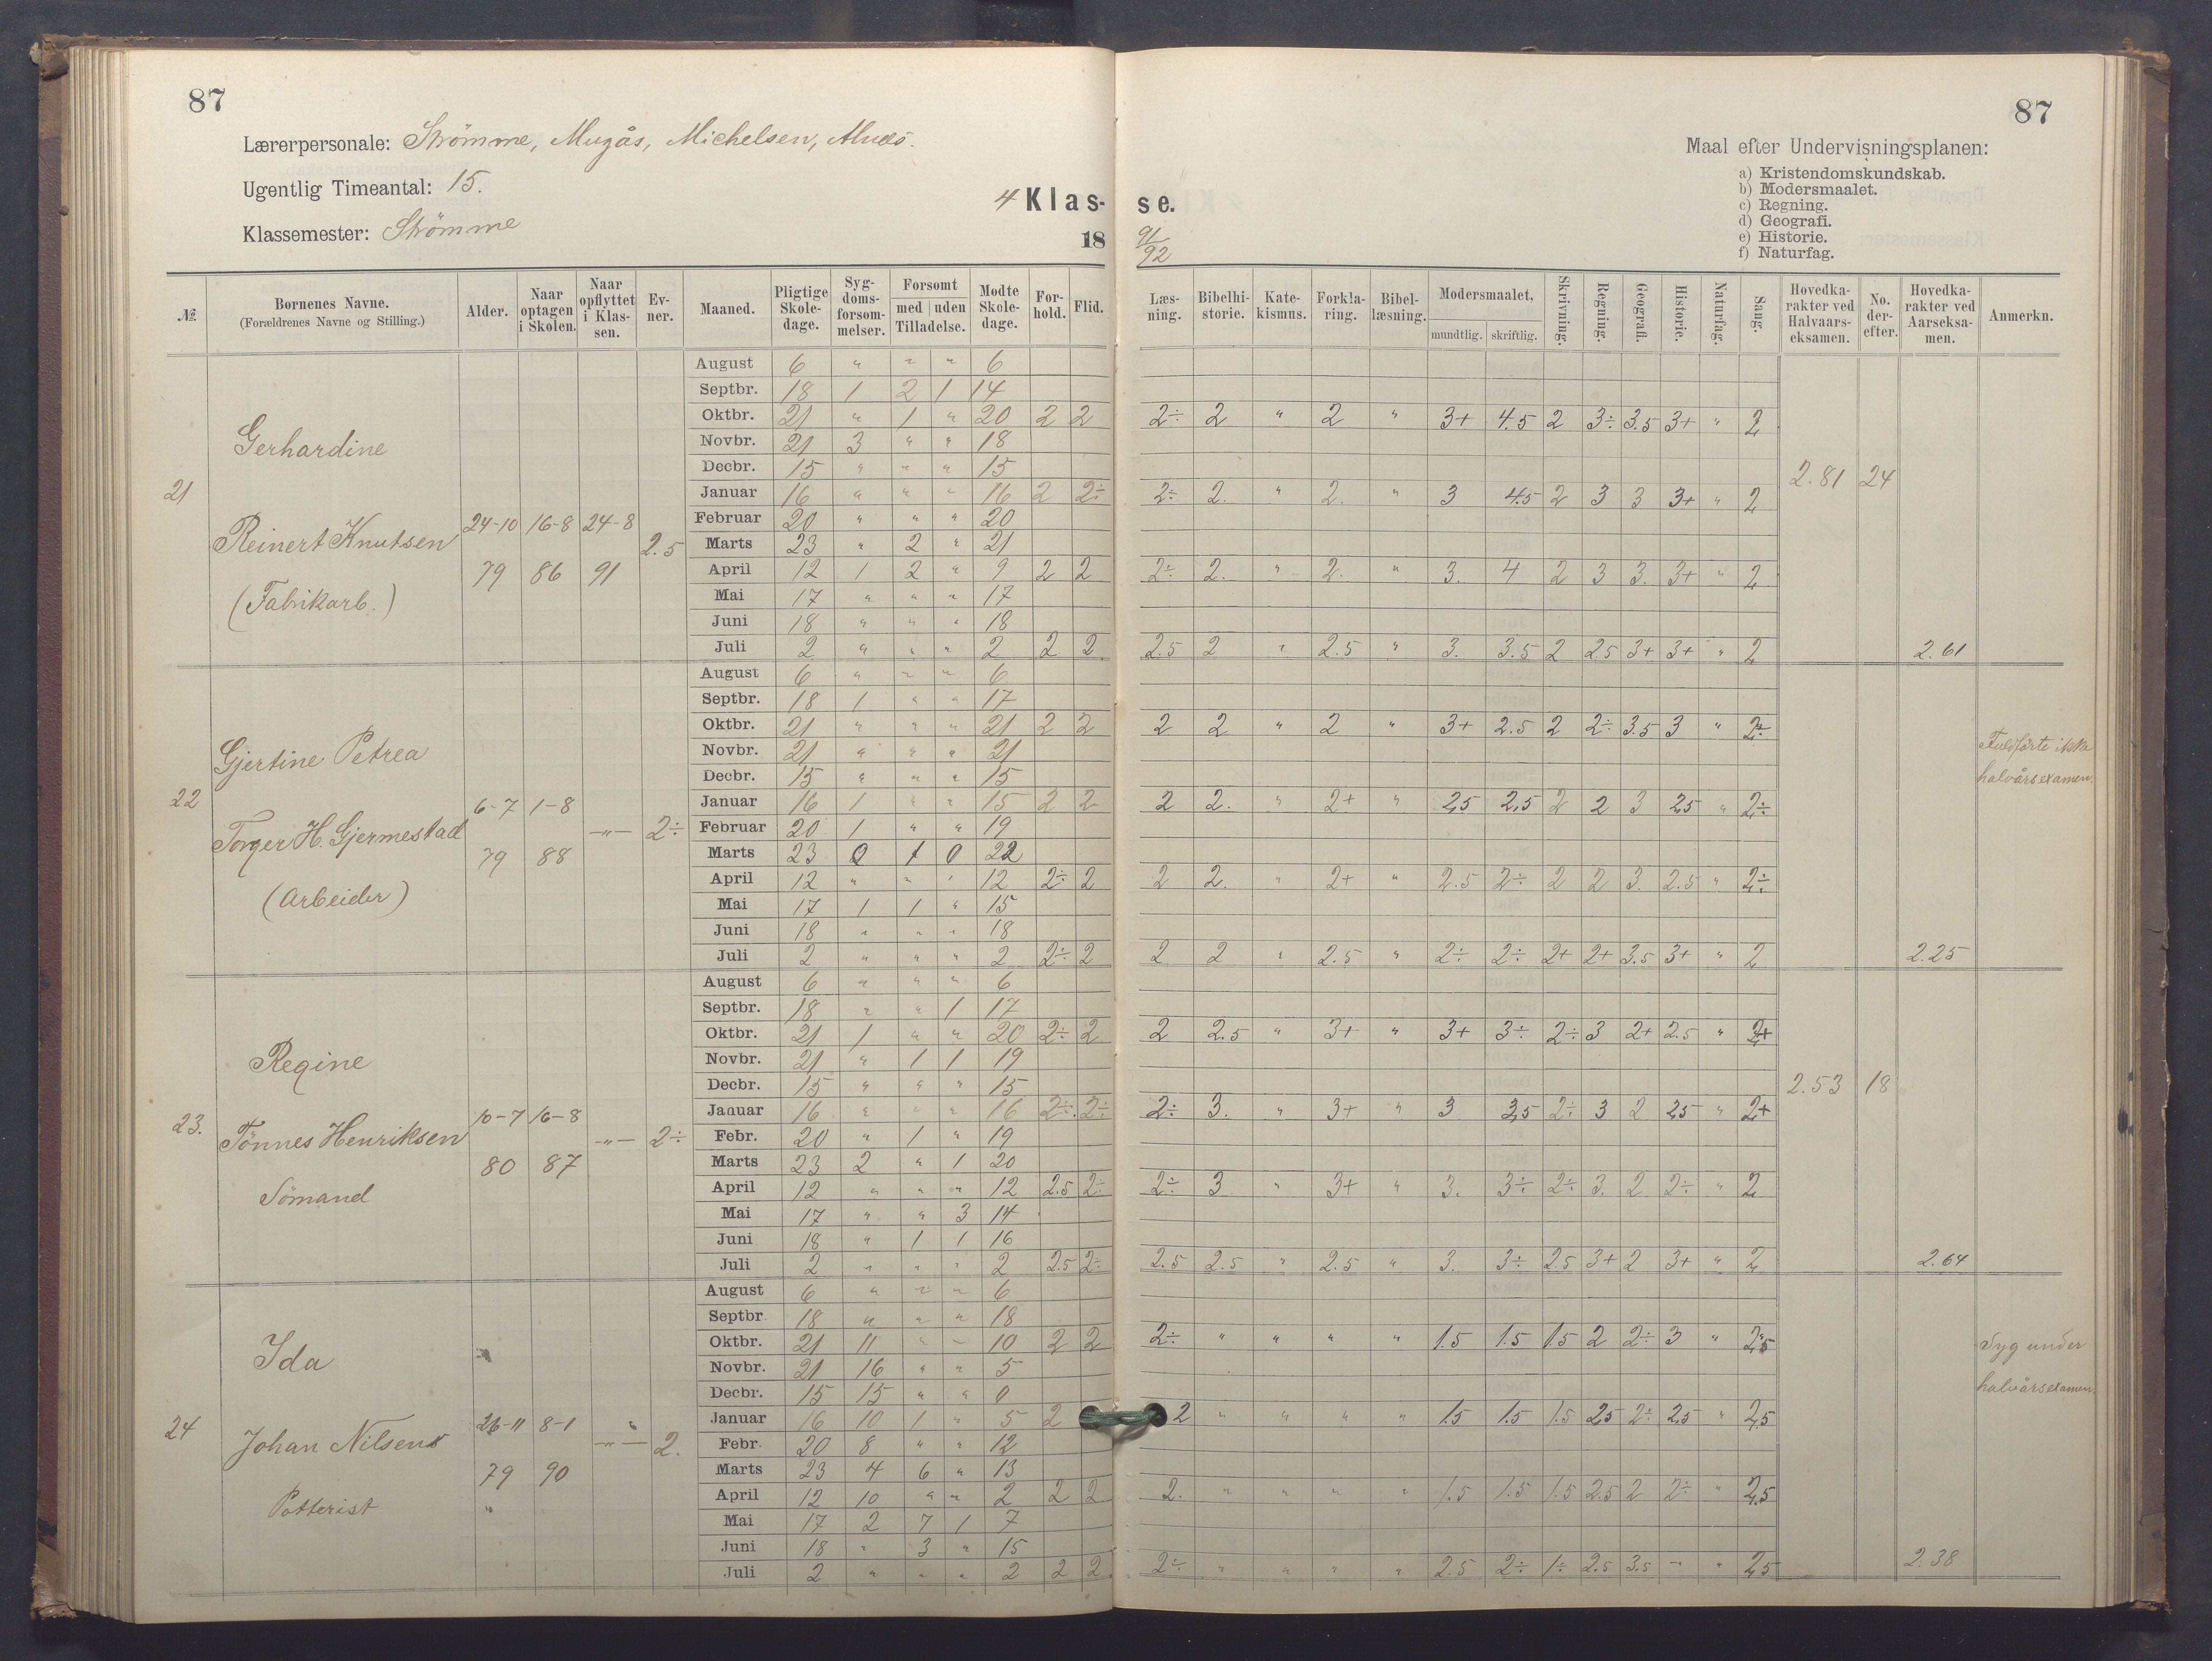 87
87
Lærerpersonale: Strömme, Mugås, Michelsen,
Ugentlig Timeantal: 15.
Klassemester: Strömme
4 Klasse.
18 91/92
Maal efter Undervisningsplanen:
a) Kristendomskundskab.
b) Modersmaalet.
c) Regning.
d) Geografi.
e) Historie.
f) Naturfag.
№. Børnenes Navne. (Forældrenes Navne og Stilling.) Alder. Naar optagen i Skolen. Naar opflyttet i Klassen. Evner. Maaned. Pligtige Skoledage. Sygdomsforsømmelser. Forsømt med uden Tilladelse. Mødte Skoledage. Forhold. Flid. Læsning. Bibelhistorie. Katekismus. Forklaring. Bibellæsning. Modersmaalet, mundtlig. skriftlig. Skrivning. Regning. Geografi. Historie. Naturfag. Sang. Hovedkarakter ved Halvaarseksamen. No. derefter. Hovedkarakter ved Aarseksamen. Anmerkn.
21 Gerhardine
Reinert Knutsen
(Fabrikarb.)
24-10 79 16-8 86 24-8 91 2.5
August 6 " " " 6
Septbr. 18 1 2 1 14
Oktbr. 21 " 1 " 20 2 2 2÷ 2 " 2 " 3+ 4.5 2 3÷ 3.5 3+ " 2
Novbr. 21 3 " " 18
Decbr. 15 " " " 15
Januar 16 " " " 16 2 2÷ 2÷ 2. " 2. " 3 4.5 2 3 3 3+ " 2 2.81 24
Februar 20 " " " 20
Marts 23 " 2 " 21
April 12 1 2 " 9 2 2 2÷ 2. " 2. " 3. 4 2 3 3. 3+ " 2
Mai 17 " " " 17
Juni 18 " " " 18
Juli 2 " " " 2 2 2 2.5 2 " 2.5 " 3. 3.5 2 2.5 3+ 3+ " 2 2.61
22 Gjertine Petrea
Torger H. Gjermestad
(Arbeider)
6-7 79 1-8 88 —"— 2÷
August 6 " " " 6
Septbr. 18 1 " " 17
Oktbr. 21 " " " 21 2 2 2 2 " 2 " 3+ 2.5 2 2÷ 3.5 3 " 2÷
Novbr. 21 " " " 21
Decbr. 15 " " " 15
Fuldförte ikke
halvårsexamen.
Januar 16 1 " " 15 2 2 2 2. " 2+ " 2,5 2,5 2 2 3 2,5 " 2÷
Februar 20 1 " " 19
Marts 23 0 1 0 22
April 12 " " " 12 2÷ 2 2 2. " 2+ " 2.5 2÷ 2 2 3. 2.5 " 2÷
Mai 17 1 1 " 15
Juni 18 " " " 18
Juli 2 " " " 2 2÷ 2 2 2 " 2.5 " 2÷ 2÷ 2+ 2+ 3.5 3+ " 2 2.25
23. Regine
Tönnes Henriksen
Sömand
10-7 80 16-8 87 —"— 2÷
August 6 " " " 6
Septbr. 18 " " 1 17
Oktbr. 21 1 " " 20 2÷ 2 2 2.5 " 3+ " 3+ 3÷ 2÷ 3 2+ 2.5 " 2+
Novbr. 21 " 1 1 19
Decbr. 15 " " " 15
Januar 16 " " " 16 2÷ 2÷ 2÷ 3. " 3+ " 3 3,5 2÷ 3 2 2,5 " 2+ 2.53 18
Febr. 20 " 1 " 19
Marts 23 2 " 1 20
April 12 " " " 12 2.5 2÷ 2÷ 3 " 3+ " 3. 3÷ 2÷ 3. 2 2÷ " 2
Mai 17 " " 3 14
Juni 18 " 1 1 16
Juli 2 " " " 2 2.5 2÷ 2.5 2.5 " 2.5 " 3. 3÷ 2.5 3+ 2 3+ " 2 2.64
24 Ida
Johan Nilsens
Potterist
26-11 79 8-1 90 —"— 2.
August 6 " " " 6
Septbr 18 " " " 18
Oktbr. 21 11 " " 10 2 2 2÷ " " " " 1.5 1.5 1.5 2 2÷ 3 " 2,5
Novbr. 21 16 " " 5
Decbr. 15 15 " " 0
Syg under
halvårsexamen.
Januar 16 10 1 " 5 2 2 " " " " 1.5 1.5 1.5 2.5 2÷ 2,5 " 2,5
Febr. 20 8 " " 12
Marts 23 4 6 " 13
April 12 10 " " 2 2 2 2. " " " " 1.5 1.5 1.5 2.5 2 2÷ " 2,5
Mai 17 2 7 1 7
Juni 18 " 3 " 15
Juli 2 " " " 2 2 2 2÷ " " " " 2.5 2÷ 1÷ 2.5 3.5 " " 2,5 2.38